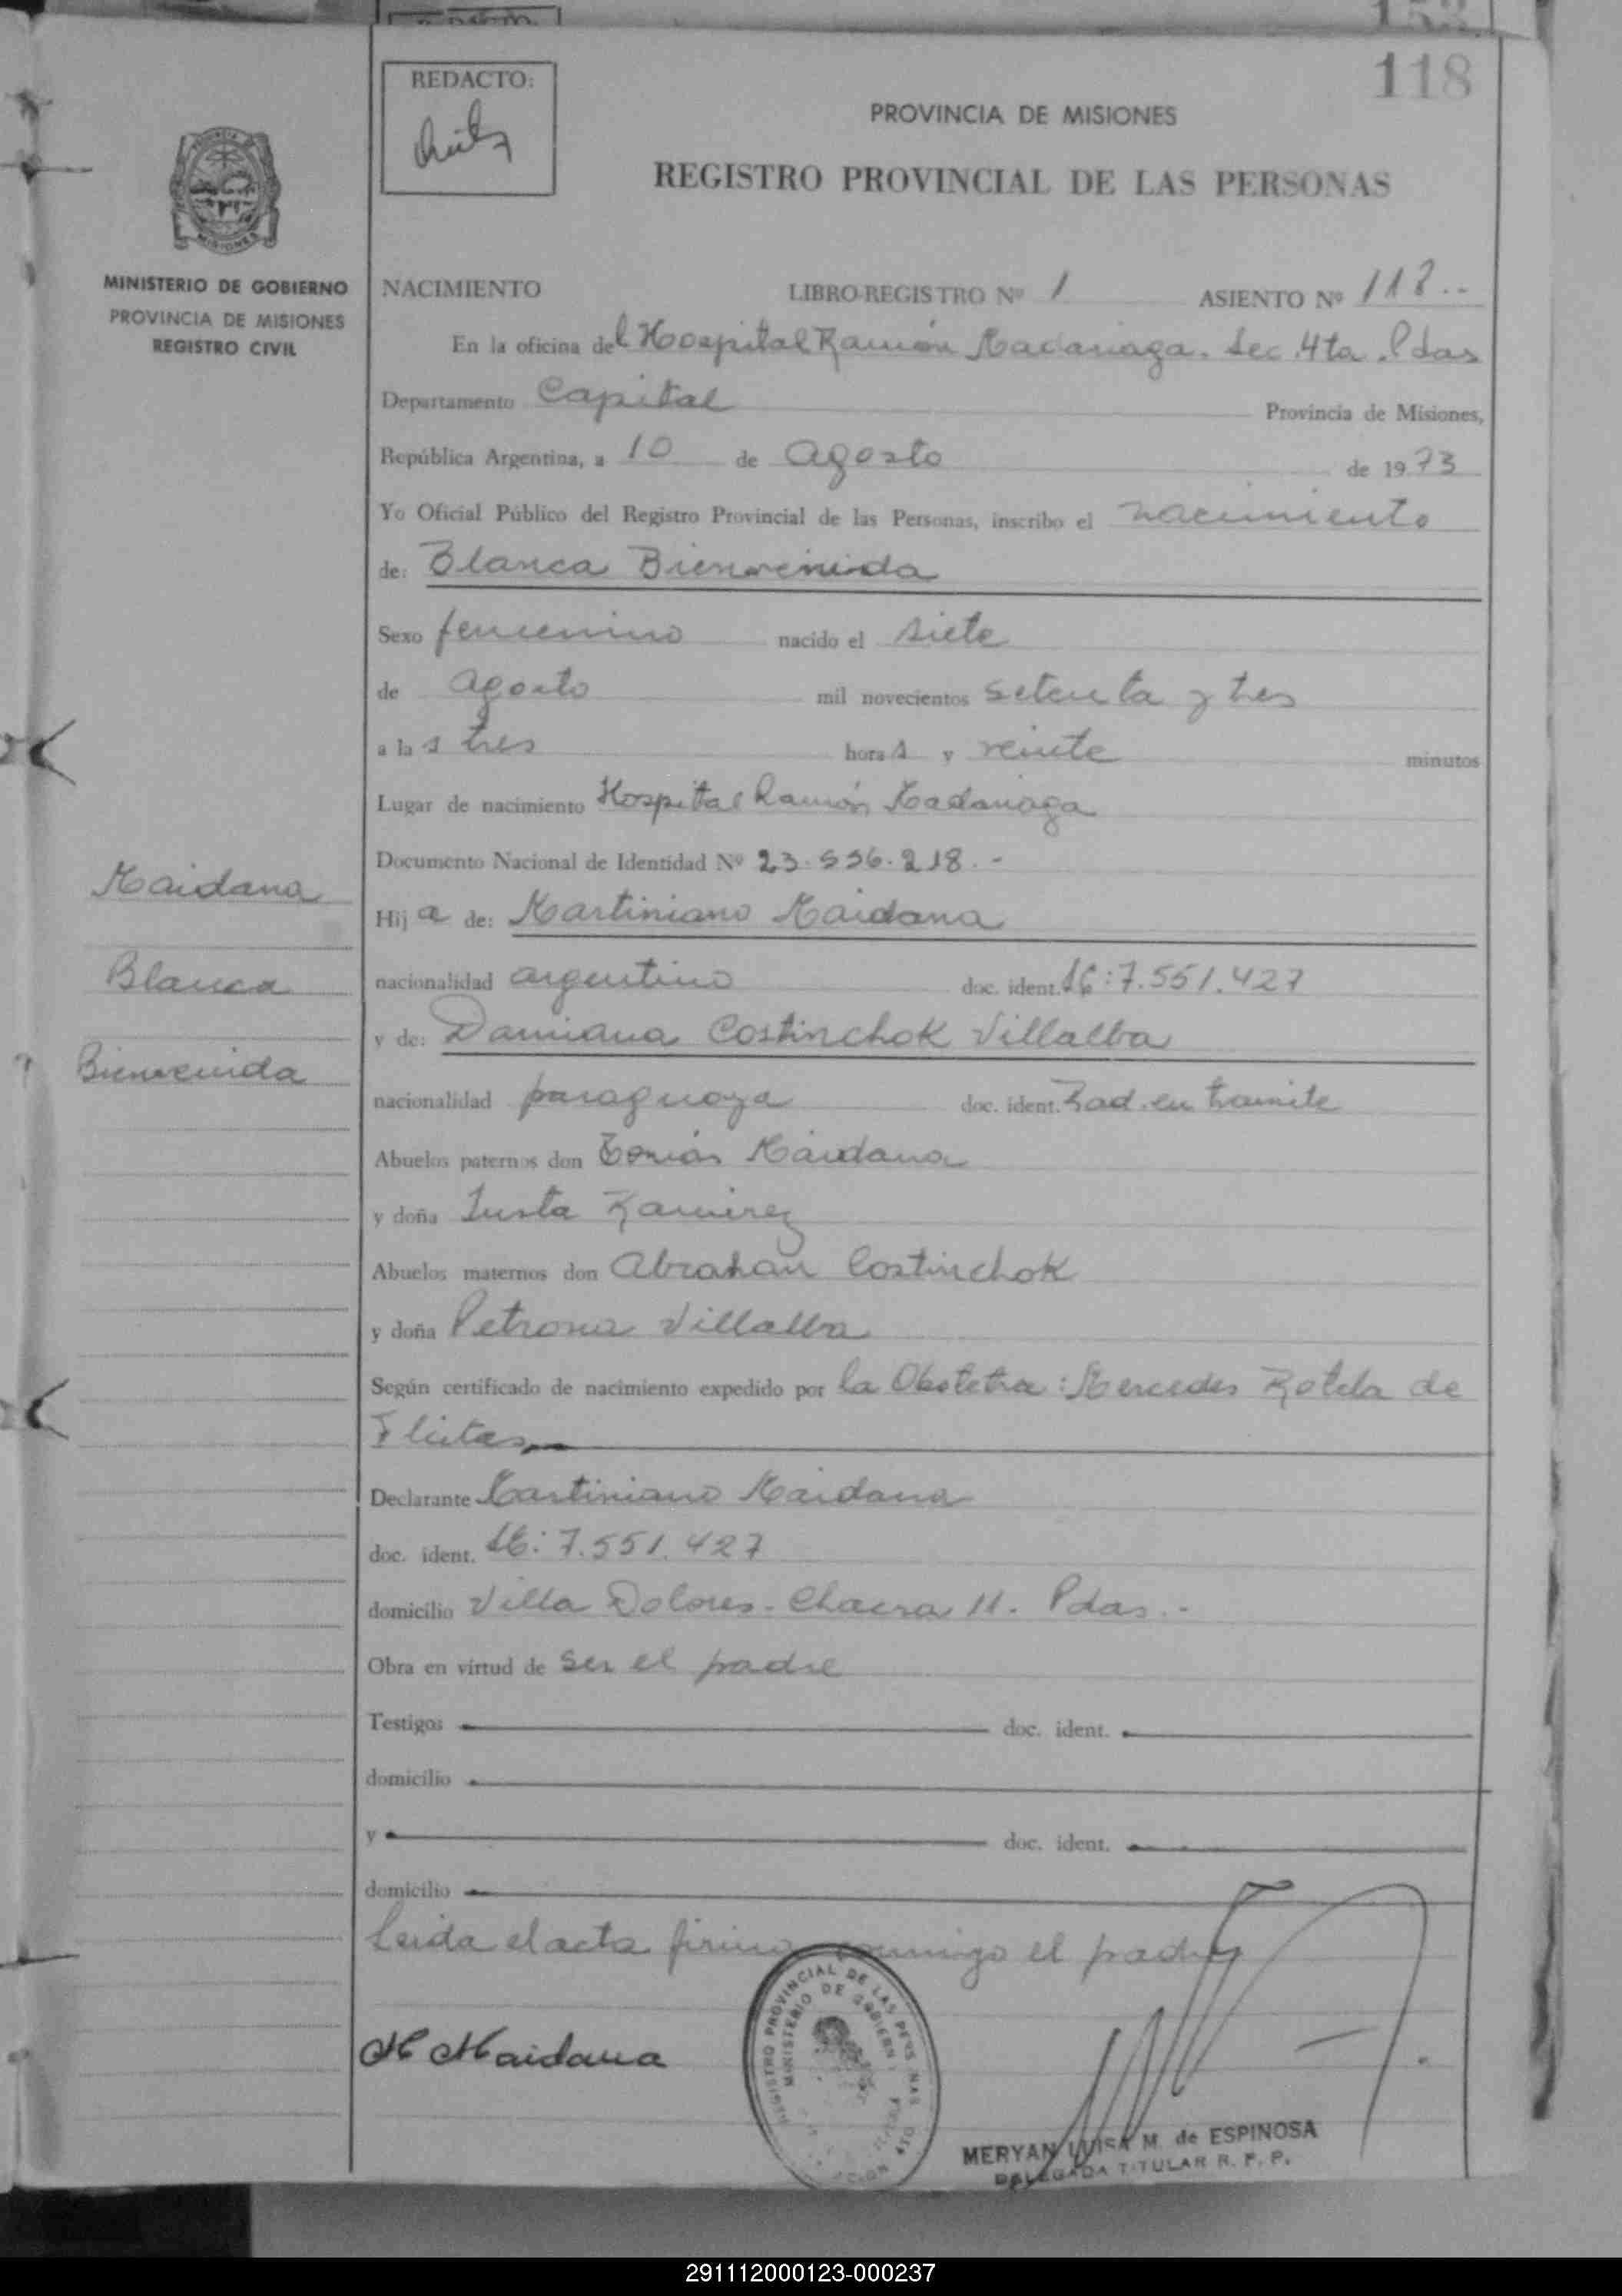 118
REDACTO:
PROVINCIA DE MISIONES
REGISTRO PROVINCIAL DE LAS PERSONAS
MISIONES
MINISTERIO DE GOBIERNO
PROVINCIA DE MISIONES
REGISTRO CIVIL
NACIMIENTO LIBRO-REGISTRO Nº 1 ASIENTO Nº 118..
En la oficina del Hospital Ramón Madariaga. Sec. 4ta. Pdas
Departamento Capital Provincia de Misiones,
República Argentina, a 10 de agosto de 1973
Yo Oficial Público del Registro Provincial de las Personas, inscribo el nacimiento
de: Blanca Bienvenida
Sexo femenino nacido el siete
de agosto mil novecientos setenta y tres
a las tres horas y veinte minutos
Lugar de nacimiento Hospital Ramón Madariaga
Documento Nacional de Identidad Nº 23.556.218.-
Maidana
Hija de: Martiniano Maidana
Blanca
nacionalidad argentino doc. ident. LE: 7.551.427
y de: Damiana Costinchok Villalba
Bienvenida
nacionalidad paraguaya doc. ident. Rad. en tramite
Abuelos paternos don Tomás Maidana
y doña Justa Ramirez
Abuelos maternos don Abrahan Costinchok
y doña Petrona Villalba
Según certificado de nacimiento expedido por la Obstetra: Mercedes Rotela de
Fleitas
Declarante Martiniano Maidana
doc. ident. LE: 7.551.427
domicilio Villa Dolores - Chacra 11. Pdas.-
Obra en virtud de ser el padre
Testigos doc. ident.
domicilio
y doc. ident.
domicilio
Leida el acta firma conmigo el padre
M Maidana
REGISTRO PROVINCIAL DE LAS PERSONAS
MINISTERIO DE GOBIERNO
MERYAN LUISA M. de ESPINOSA
DELEGADA TITULAR R. P. P.
291112000123-000237